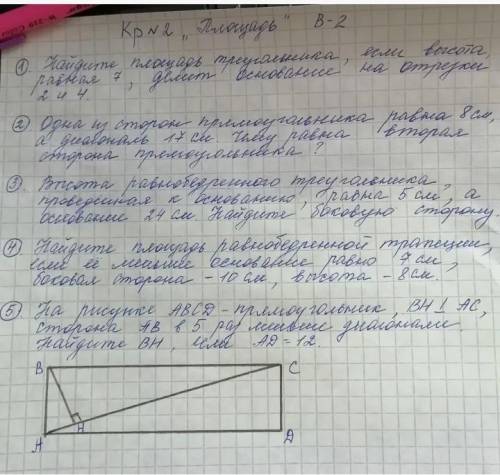 Кр №2 „Площадь" В-2
① Найдите площадь треугольника, если высота,
равная 7, делит основание на отрезки
2 и 4.
② Одна из сторон прямоугольника равна 8см,
а диагональ 17 см. Чему равна вторая
сторона прямоугольника?
③ Высота равнобедренного треугольника,
проведённая к основанию, равна 5 см, а
основание 24 см. Найдите боковую сторону.
④ Найдите площадь равнобедренной трапеции,
если её меньшее основание равно 7 см,
боковая сторона - 10 см, высота - 8 см.
⑤ На рисунке ABCD - прямоугольник, BH ⊥ AC,
сторона AB в 5 раз меньше диагонали.
Найдите BH, если AD = 12.
B C
H
A D